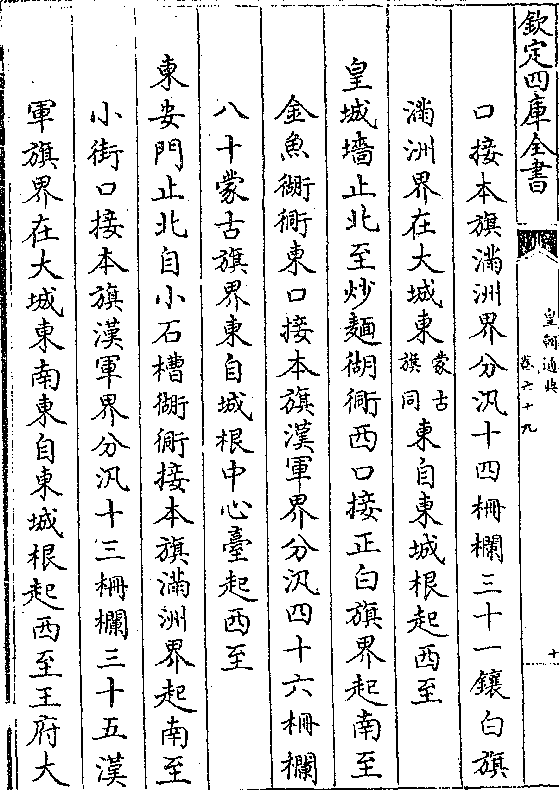 欽定四庫全書
皇朝通典
卷六十九
十
口接本旗滿洲界分汛十四柵欄三十一鑲白旗
滿洲界在大城東蒙古旗同東自東城根起西至
皇城墻止北至炒麵衚衕西口接正白旗界起南至
金魚衚衕東口接本旗漢軍界分汛四十六柵欄
八十蒙古旗界東自城根中心臺起西至
東安門止北自小石槽衚衕接本旗滿洲界起南至
小街口接本旗漢軍界分汛十三柵欄三十五漢
軍旗界在大城東南東自東城根起西至王府大